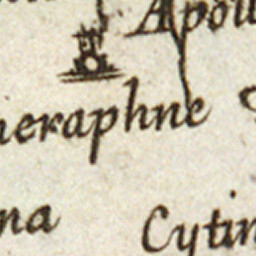 Apoll
heraphne
na Cytin